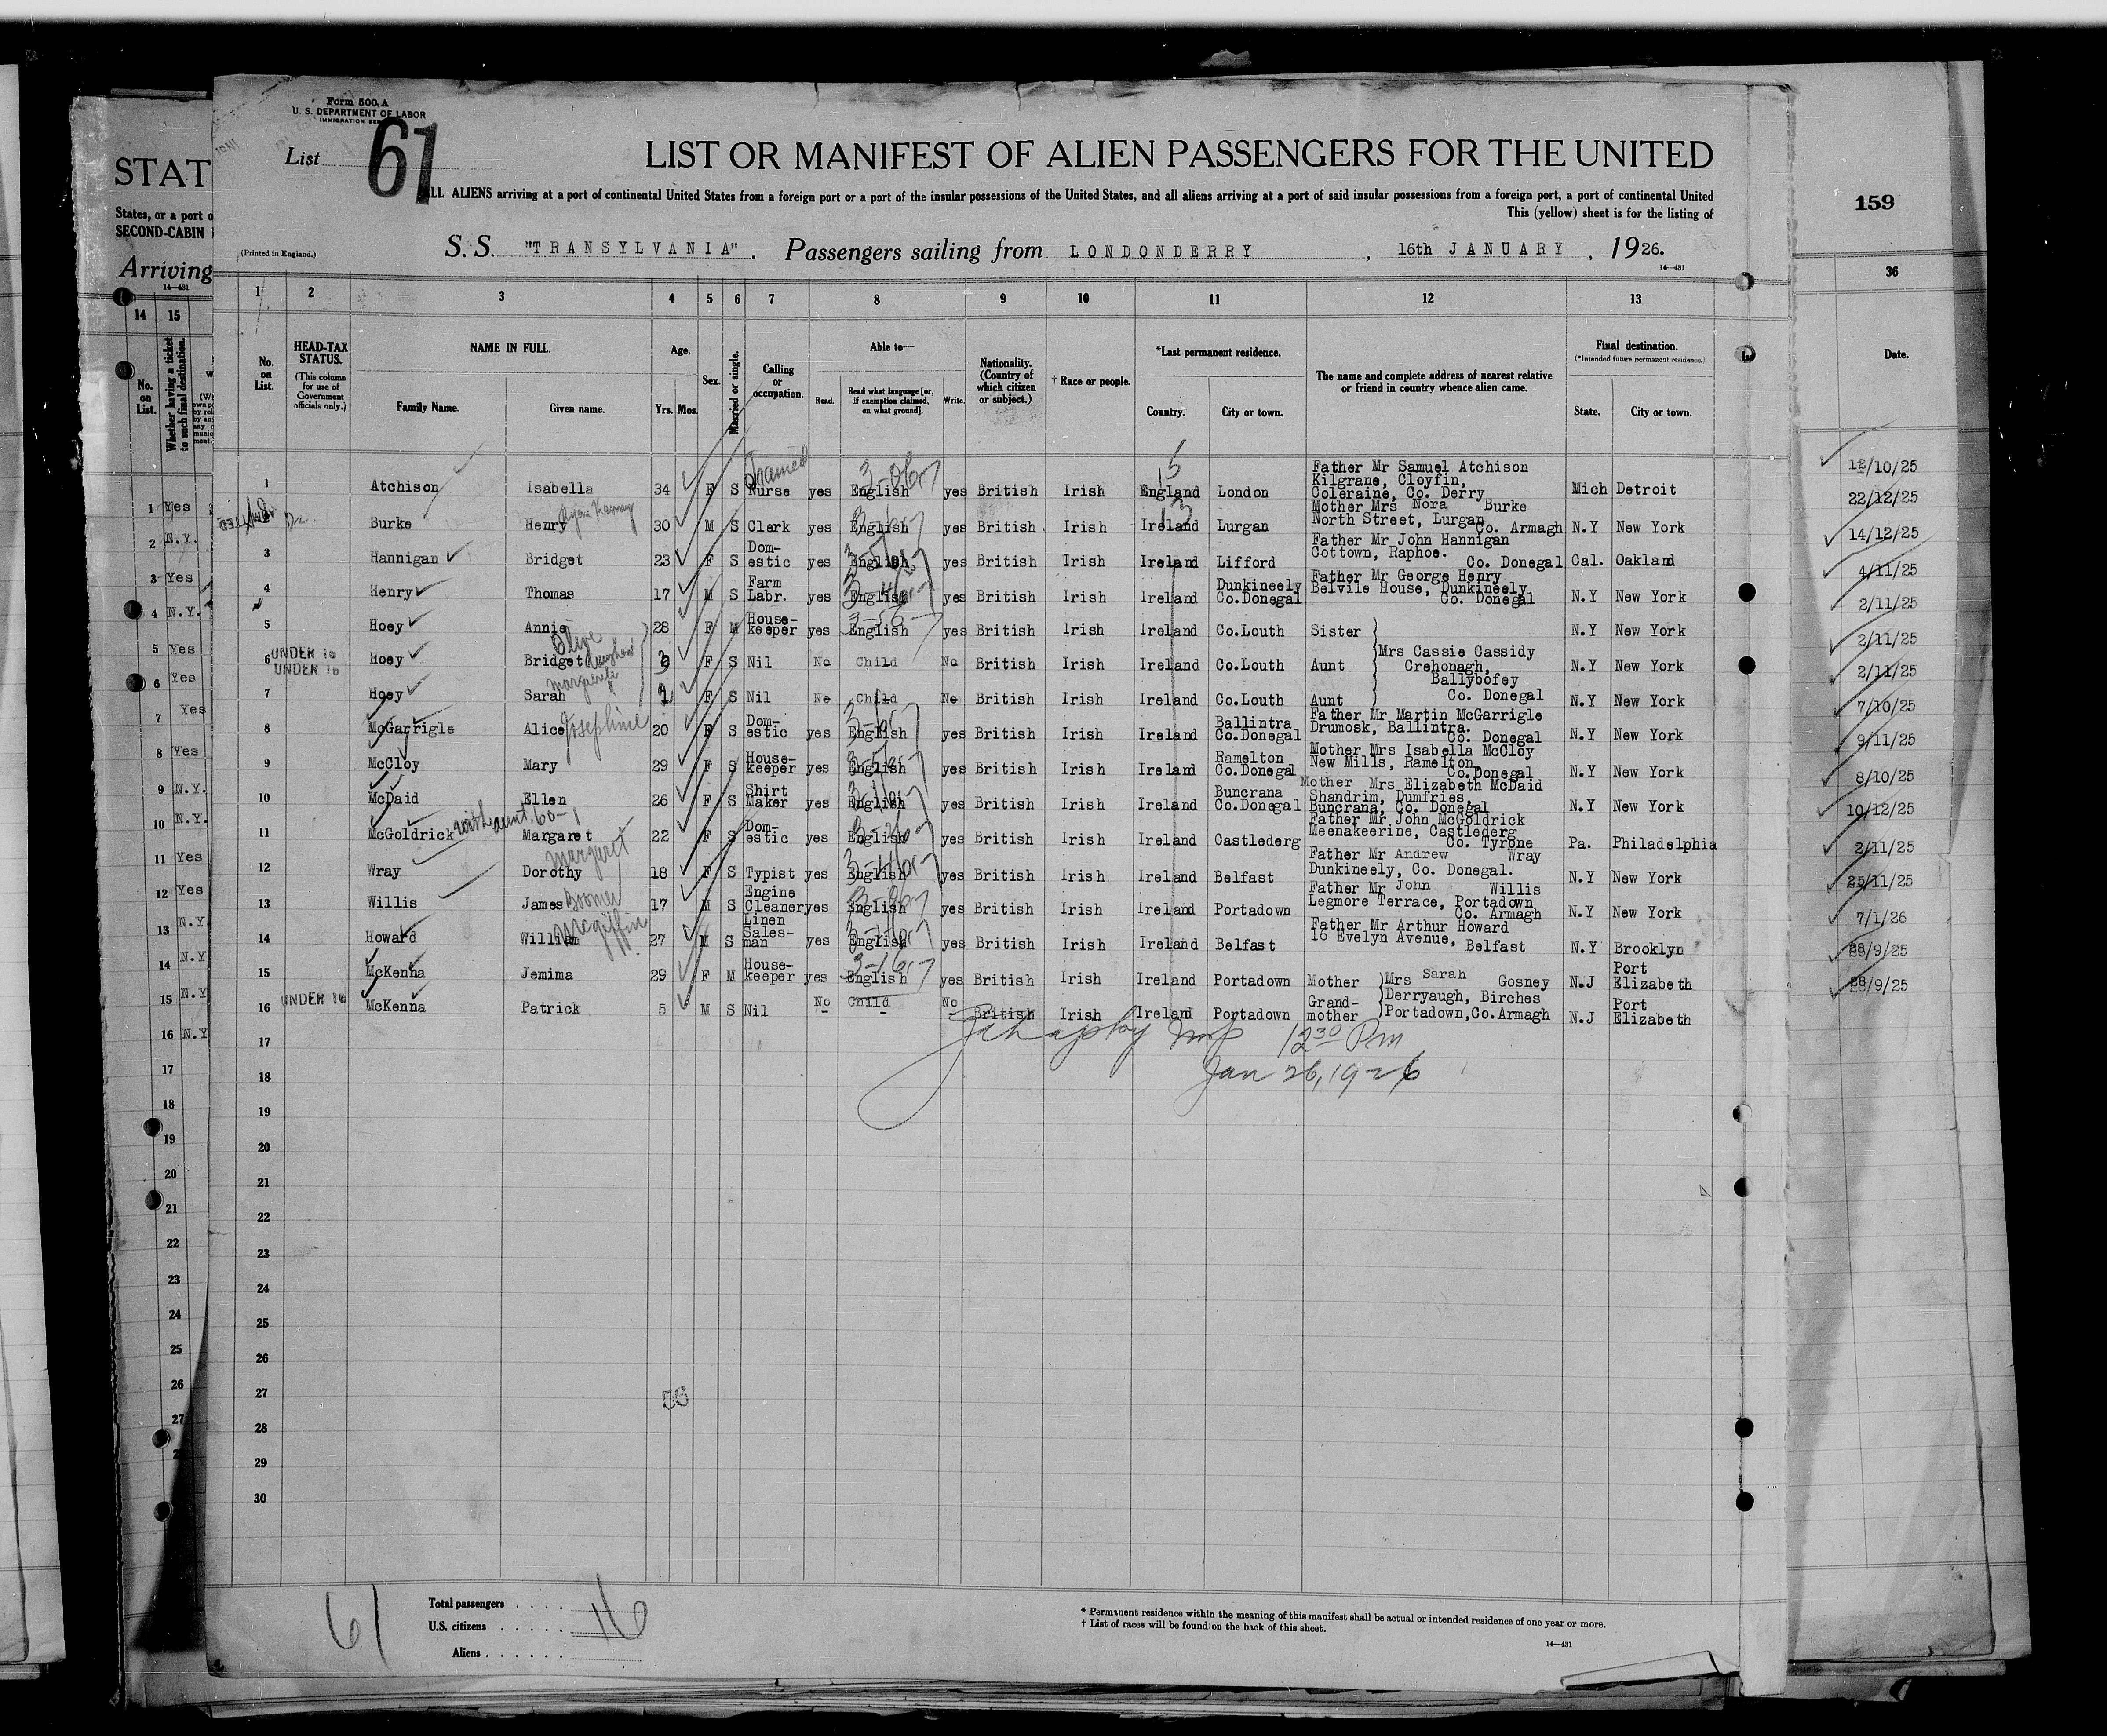 Form 500,A
U. S. DEPARTMENT OF LABOR
IMMIGRATION
List 61
LIST OR MANIFEST OF ALIEN PASSENGERS FOR THE UNITED
ALL ALIENS arriving at a port of continental United States from a foreign port or a port of the insular possessions of the United States, and all aliens arriving at a port of said insular possessions from a foreign port, a port of continental United
This (yellow) sheet is for the listing of
(Printed in England.)
S. S. "TRANSYLVANIA". Passengers sailing from LONDONDERRY , 16th JANUARY , 1926.
14—431
STAT
States, or a port o
SECOND-CABIN
Arriving
14—431
159
36
Date.
14 15
No. on List.
Whether having a ticket to such final destination.
1 2 3 4 5 6 7 8 9 10 11 12 13
No. on List.
HEAD-TAX STATUS.
(This column for use of Government officials only.)
NAME IN FULL.
Family Name. Given name.
Age.
Yrs. Mos.
Sex.
Married or single.
Calling or occupation.
Able to—
Read. Read what language [or, if exemption claimed, on what ground]. Write.
Nationality. (Country of which citizen or subject.)
† Race or people.
*Last permanent residence.
Country. City or town.
The name and complete address of nearest relative or friend in country whence alien came.
Final destination.
(*Intended future permanent residence.)
State. City or town.
1 Atchison Isabella 34 F S Trained Nurse yes English yes British Irish England London Father Mr Samuel Atchison Kilgrane, Cloyfin, Coleraine, Co. Derry Mich Detroit
2 Burke Henry 30 M S Clerk yes English yes British Irish Ireland Lurgan Mother Mrs Nora Burke North Street, Lurgan Co. Armagh N.Y New York
3 Hannigan Bridget 23 F S Dom-estic yes English yes British Irish Ireland Lifford Father Mr John Hannigan Cottown, Raphoe. Co. Donegal Cal. Oakland
4 Henry Thomas 17 M S Farm Labr. yes English yes British Irish Ireland Dunkineely Co.Donegal Father Mr George Henry Belvile House, Dunkineely Co. Donegal N.Y New York
5 Hoey Annie 28 F M House-keeper yes English yes British Irish Ireland Co.Louth Sister N.Y New York
6 UNDER 16 UNDER 16 Hoey Olive Bridget F S Nil No Child No British Irish Ireland Co.Louth Aunt Mrs Cassie Cassidy Crehonagh, Ballybofey Co. Donegal N.Y New York
7 Hoey Sarah Marguerite F S Nil No Child No British Irish Ireland Co.Louth Aunt N.Y New York
8 McGarrigle Alice Josephine 20 F S Dom-estic yes English yes British Irish Ireland Ballintra Co.Donegal Father Mr Martin McGarrigle Drumosk, Ballintra. Co. Donegal N.Y New York
9 McCloy Mary 29 F S House-keeper yes English yes British Irish Ireland Ramelton Co.Donegal Mother Mrs Isabella McCloy New Mills, Ramelton, Co.Donegal N.Y New York
10 McDaid Ellen 26 F S Shirt Maker yes English yes British Irish Ireland Buncrana Co.Donegal Mother Mrs Elizabeth McDaid Shandrim, Dumfries, Buncrana, Co. Donegal N.Y New York
11 McGoldrick with aunt, 60-1 Margaret 22 F S Dom-estic yes English yes British Irish Ireland Castlederg Father Mr John McGoldrick Meenakeerine, Castlederg Co. Tyrone Pa. Philadelphia
12 Wray Dorothy Margaret 18 F S Typist yes English yes British Irish Ireland Belfast Father Mr Andrew Wray Dunkineely, Co. Donegal. N.Y New York
13 Willis James Boomer 17 M S Engine Cleaner yes English yes British Irish Ireland Portadown Father Mr John Willis Legmore Terrace, Portadown Co. Armagh N.Y New York
14 Howard William McGiffin 27 M S Linen Sales-man yes English yes British Irish Ireland Belfast Father Mr Arthur Howard 16 Evelyn Avenue, Belfast N.Y Brooklyn
15 McKenna Jemima 29 F M House-keeper yes English yes British Irish Ireland Portadown Mother Mrs Sarah Gosney N.J Port Elizabeth
16 UNDER 16 McKenna Patrick 5 M S Nil No Child No British Irish Ireland Portadown Grand-mother Derryaugh, Birches Portadown,Co.Armagh N.J Port Elizabeth
12 30 Pm
Jan 26, 1926
17
18
19
20
21
22
23
24
25
26
27
28
29
30
1 Yes
2 N.Y.
3 Yes
4 N.Y.
5 Yes
6 Yes
7 Yes
8 Yes
9 N.Y.
10 N.Y.
11 Yes
12 Yes
13 N.Y
14 N.Y
15 N.Y
16 N.Y
17
18
19
20
21
22
23
24
25
26
27
12/10/25
22/12/25
14/12/25
4/11/25
2/11/25
2/11/25
2/11/25
7/10/25
9/11/25
8/10/25
10/12/25
2/11/25
25/11/25
7/1/26
29/9/25
28/9/25
61
Total passengers 16
U.S. citizens
Aliens
* Permanent residence within the meaning of this manifest shall be actual or intended residence of one year or more.
† List of races will be found on the back of this sheet.
14—431